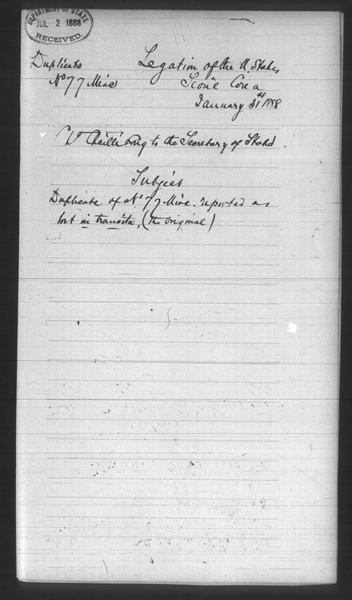 DEPARTMENT OF STATE
JUL 2 1888
RECEIVED.
Duplicate Legation of the U. States
No 77 Misc Seoul Corea
January 31st 1888
Chaillé Long to the Secretary of State.
Subject
Duplicate of No 77 Misc. reported as
lost in transitu, (the original)